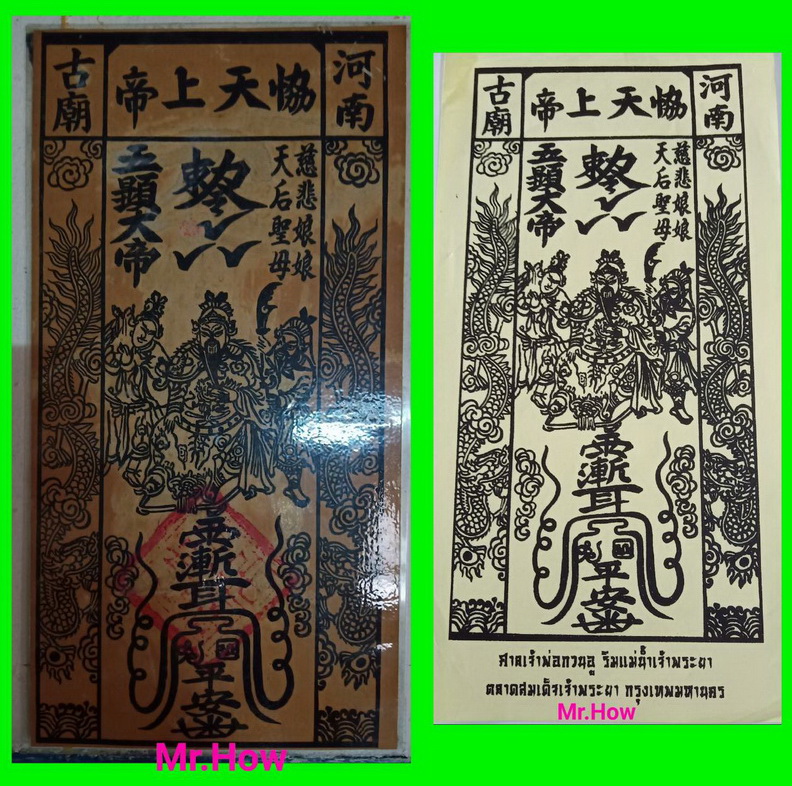 河南
恊天上帝
古廟
慈悲娘娘
天后聖母
五顯大帝
平安
Mr.How
河南
恊天上帝
古廟
慈悲娘娘
天后聖母
五顯大帝
平安
ศาลเจ้าพ่อกวนอู ริมแม่น้ำเจ้าพระยา
ตลาดสมเด็จเจ้าพระยา กรุงเทพมหานคร
Mr.How